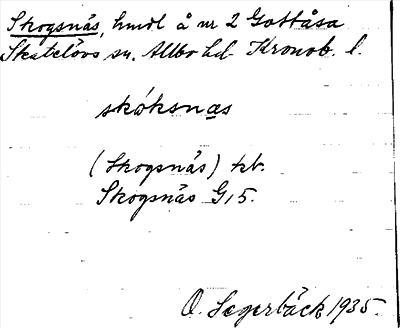 Skogsnäs, hmdl å nr 2 Gottåsa
Skatelövs sn. Allbo hd. Kronob. l.
skóksnas
(Skogsnäs) kb.
Skogsnäs G15.
O. Segerbäck 1935.